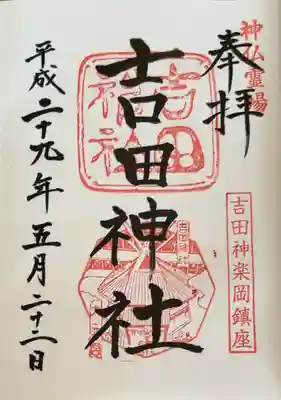 神仏霊場
奉拝
吉田神楽岡鎮座
吉田神社
吉田神社
平成二十九年五月二十二日